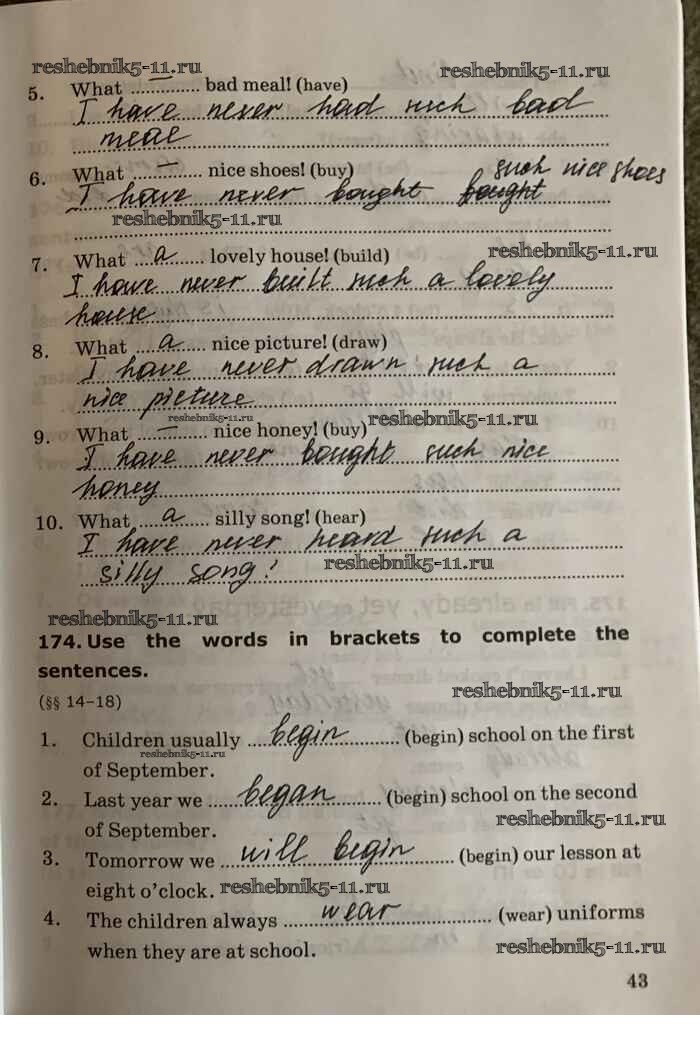 reshebnik5-11.ru
reshebnik5-11.ru
5. What ....—.... bad meal! (have)
I have never had such bad
meal
6. What ....—.... nice shoes! (buy) such nice shoes
I have never bought bought
reshebnik5-11.ru
7. What ....a.... lovely house! (build) reshebnik5-11.ru
I have never built such a lovely
house
8. What ....a.... nice picture! (draw)
I have never drawn such a
nice picture
reshebnik5-11.ru
9. What ....—.... nice honey! (buy) reshebnik5-11.ru
I have never bought such nice
honey
10. What ....a.... silly song! (hear)
I have never heard such a
silly song! reshebnik5-11.ru
reshebnik5-11.ru
174. Use the words in brackets to complete the
sentences.
reshebnik5-11.ru
(§§ 14–18)
1. Children usually ....begin.... (begin) school on the first
reshebnik5-11.ru
of September.
2. Last year we ....began.... (begin) school on the second
of September. reshebnik5-11.ru
3. Tomorrow we ....will begin.... (begin) our lesson at
eight o'clock. reshebnik5-11.ru
4. The children always ....wear.... (wear) uniforms
when they are at school. reshebnik5-11.ru
43